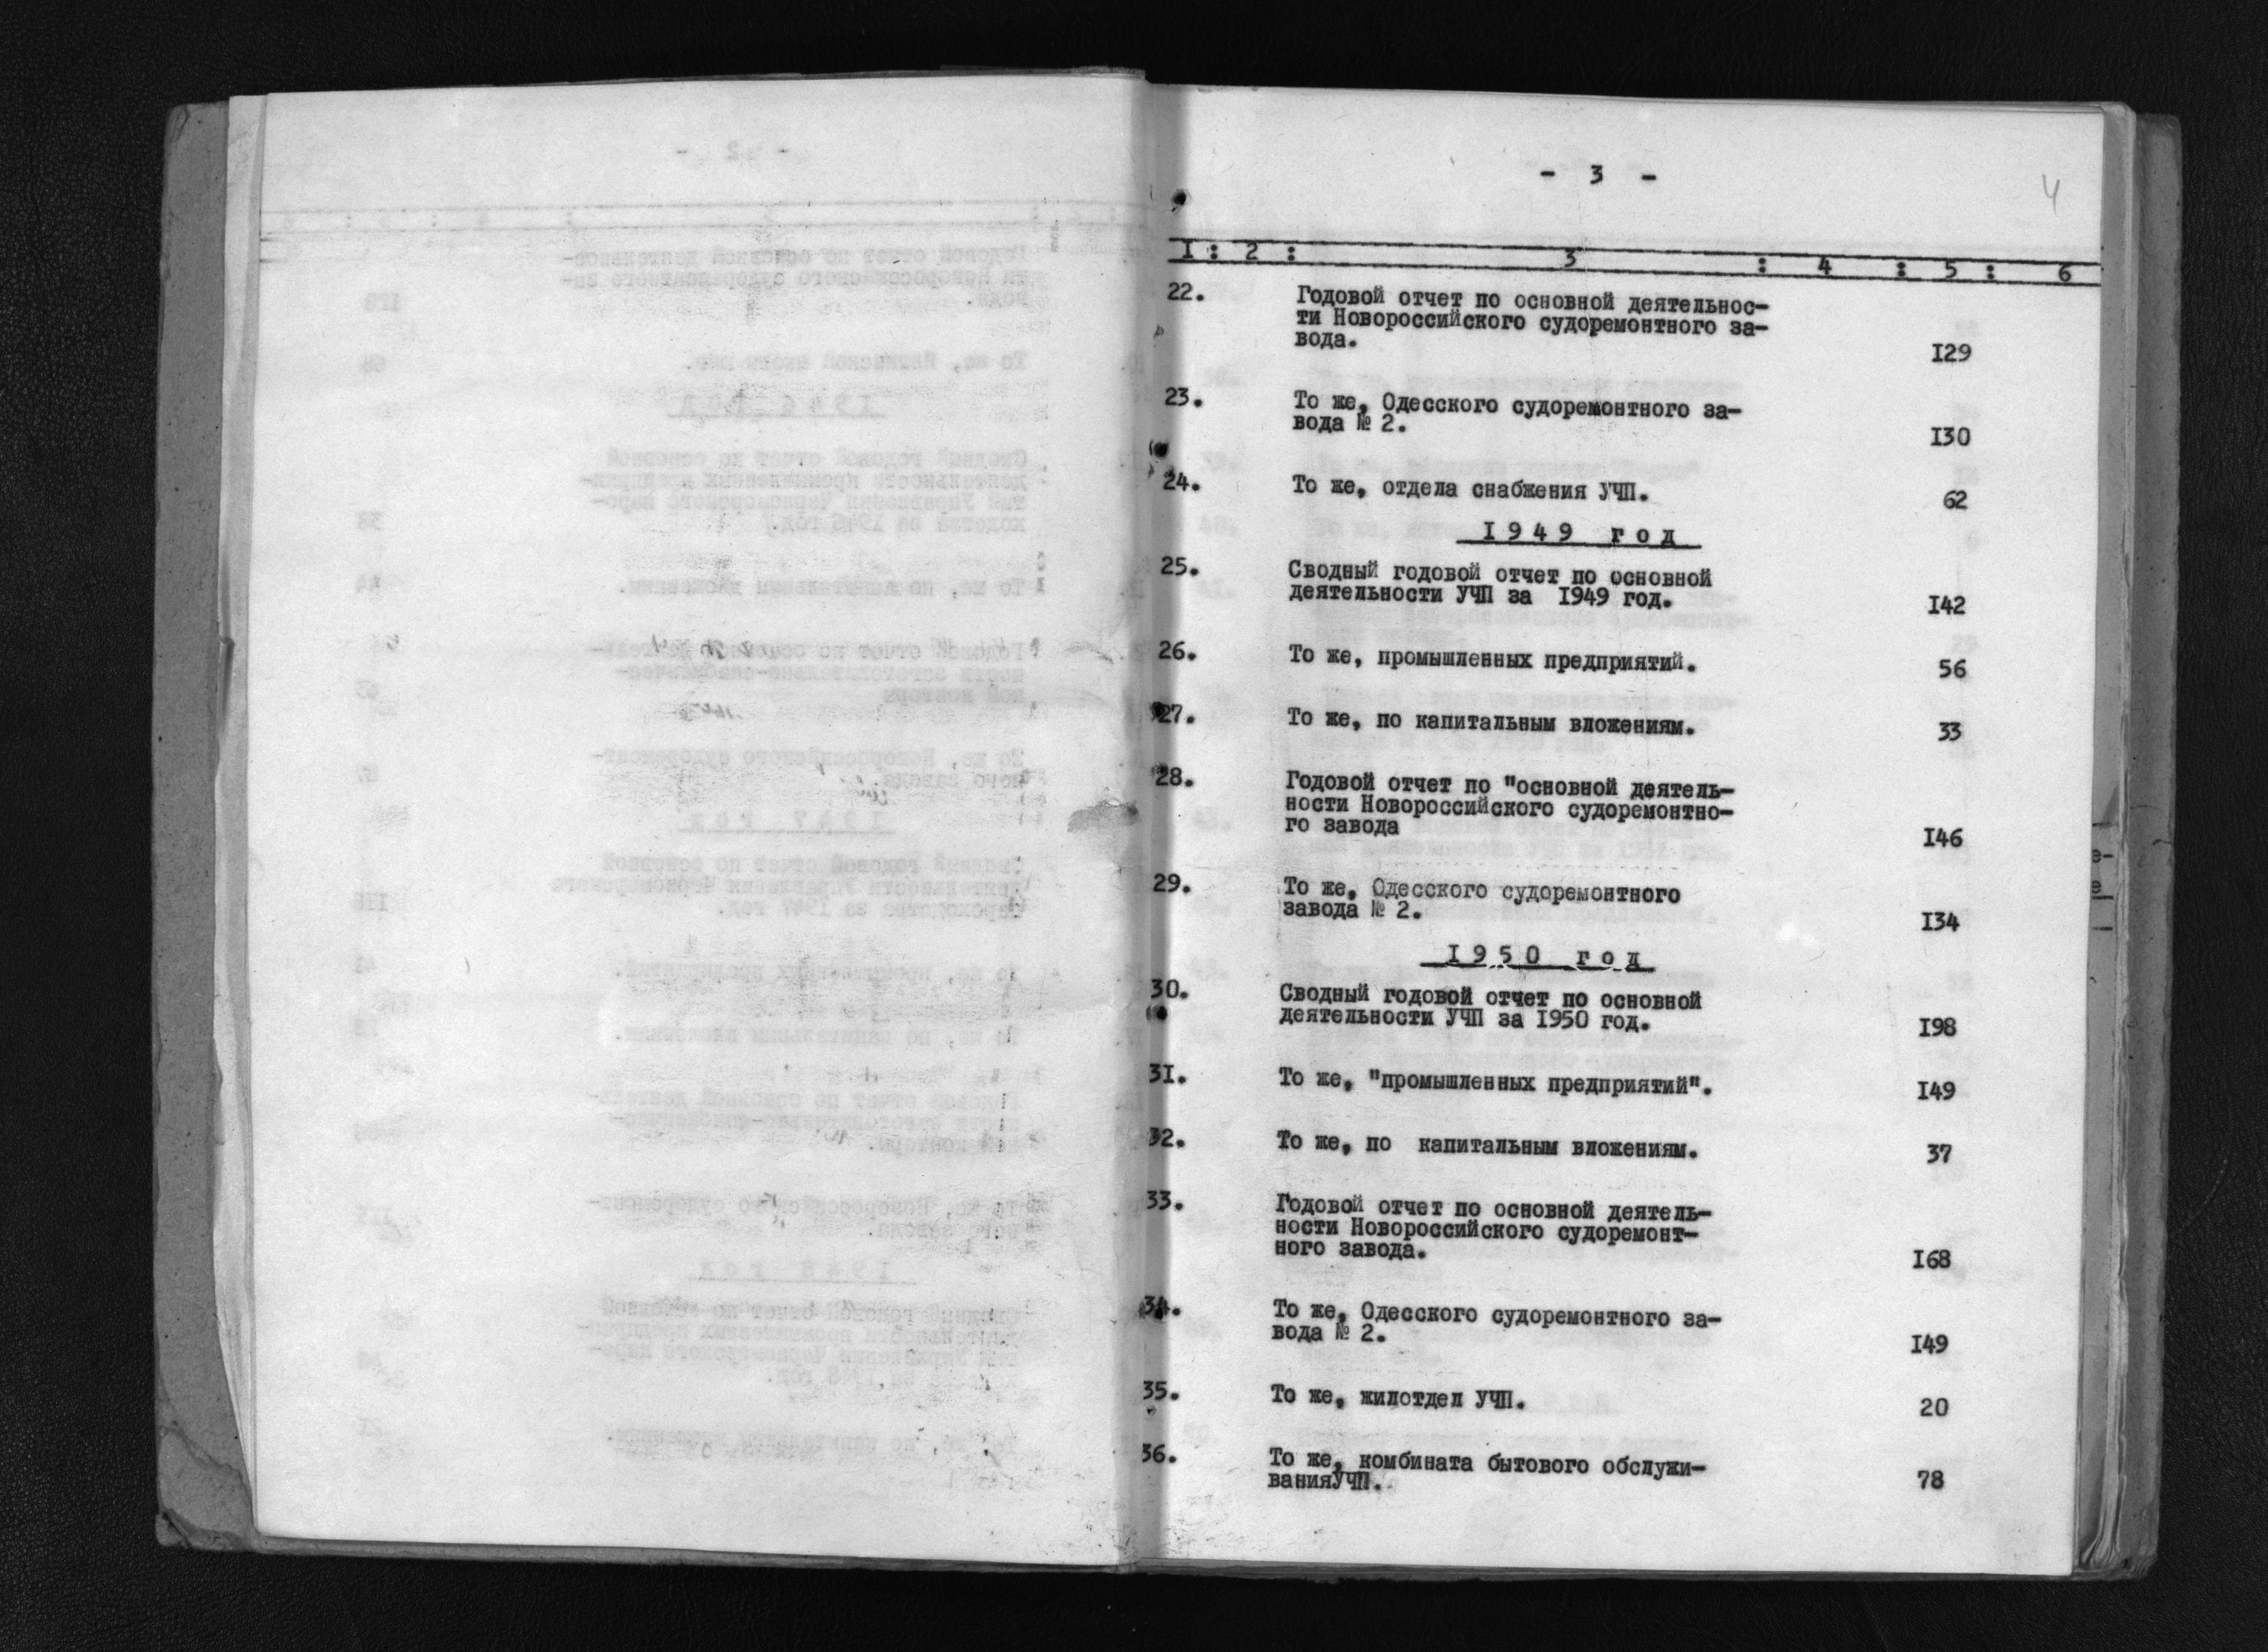 - 3 -
4
I : 2 : 3 : 4 : 5 : 6
22. Годовой отчет по основной деятельнос-
ти Новороссийского судоремонтного за-
вода. I29
23. То же, Одесского судоремонтного за-
вода № 2. I30
24. То же, отдела снабжения УЧП. 62
I949 год
25. Сводный годовой отчет по основной
деятельности УЧП за I949 год. I42
26. То же, промышленных предприятий. 56
27. То же, по капитальным вложениям. 33
28. Годовой отчет по "основной деятель-
ности Новороссийского судоремонтно-
го завода I46
29. То же, Одесского судоремонтного
завода № 2. I34
I950 год
30. Сводный годовой отчет по основной
деятельности УЧП за I950 год. I98
31. То же, "промышленных предприятий". I49
32. То же, по капитальным вложениям. 37
33. Годовой отчет по основной деятель-
ности Новороссийского судоремонт-
ного завода. I68
34. То же, Одесского судоремонтного за-
вода № 2. I49
35. То же, жилотдел УЧП. 20
36. То же, комбината бытового обслужи-
ванияУЧП. 78